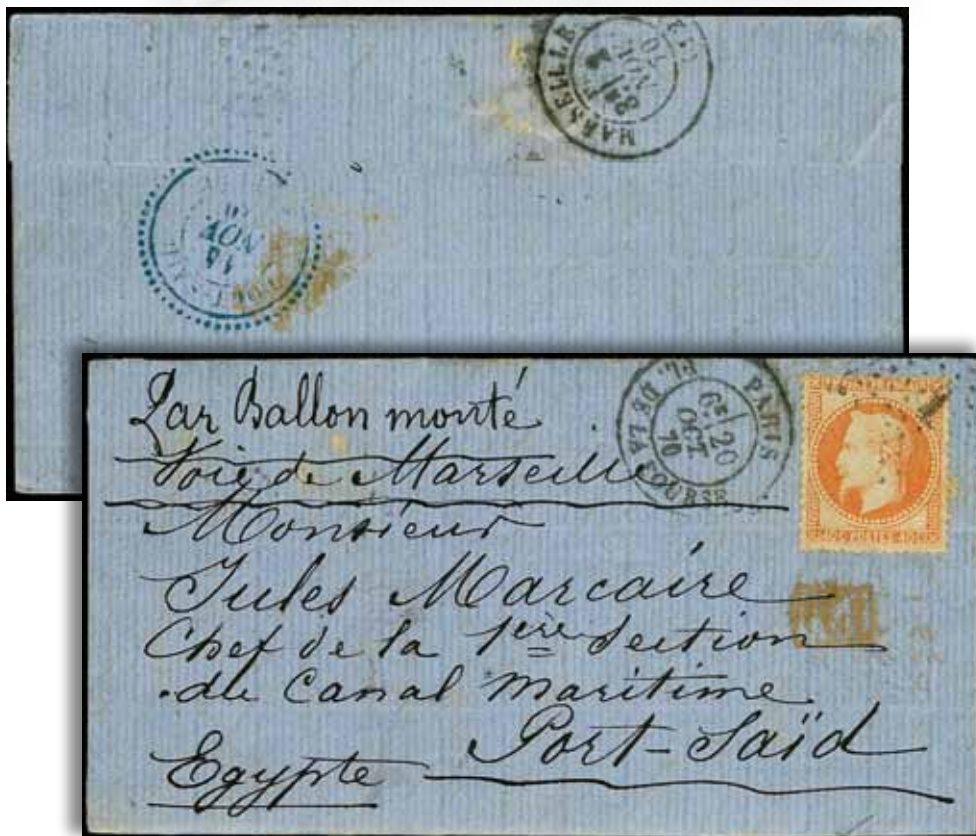 MARSEILLE
NOV
14
NOV
Par Ballon monté
Voie de Marseille
Monsieur
Jules Marcaire
Chef de la 1ère Section
du Canal maritime
Port-Saïd
Egypte
PARIS
PL. DE LA BOURSE
6E 20
OCT
70
1
40C POSTES 40C